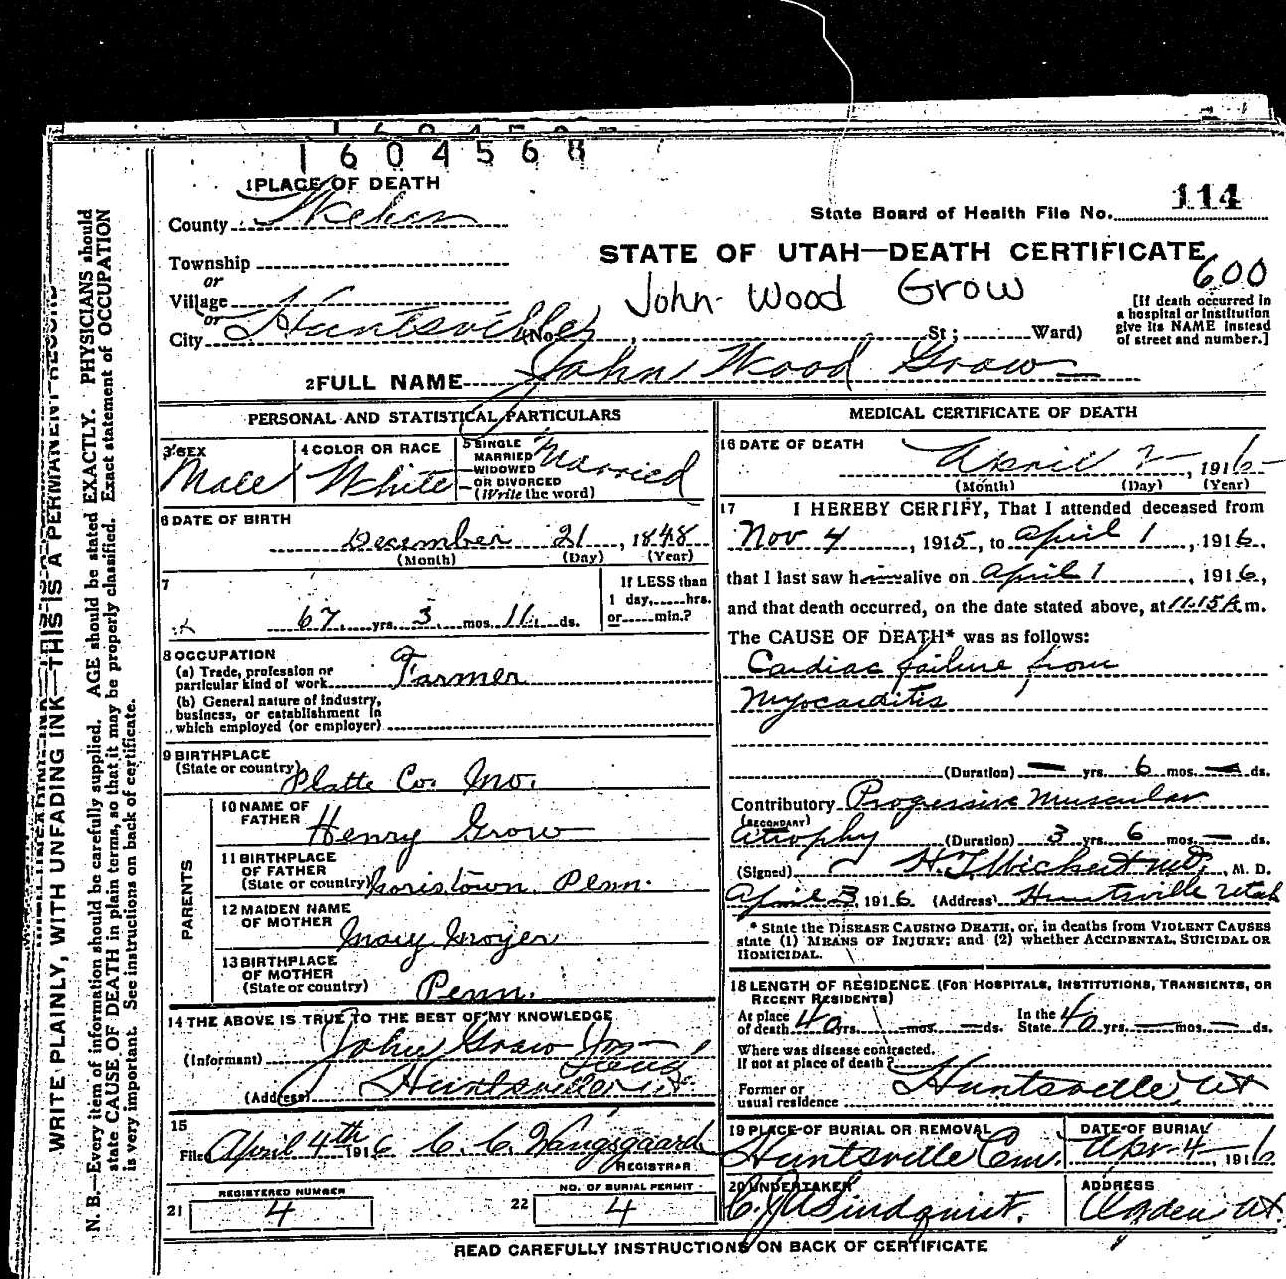 1604568
1 PLACE OF DEATH
County Weber
State Board of Health File No. 114
STATE OF UTAH—DEATH CERTIFICATE
600
Township
or
Village
or
City Huntsville (No. , St; Ward)
John Wood Grow
[If death occurred in
a hospital or institution
give its NAME instead
of street and number.]
2 FULL NAME John Wood Grow
PERSONAL AND STATISTICAL PARTICULARS
3 SEX Male
4 COLOR OR RACE White
5 SINGLE
MARRIED
WIDOWED
OR DIVORCED
(Write the word) Married
6 DATE OF BIRTH
December 21, 1848
(Month) (Day) (Year)
7
67 yrs. 3 mos. 11 ds.
If LESS than
1 day,.....hrs.
or.....min.?
8 OCCUPATION
(a) Trade, profession or
particular kind of work Farmer
(b) General nature of industry,
business, or establishment in
which employed (or employer)
9 BIRTHPLACE
(State or country) Platte Co. Mo.
PARENTS
10 NAME OF
FATHER Henry Grow
11 BIRTHPLACE
OF FATHER
(State or country) Noristown Penn.
12 MAIDEN NAME
OF MOTHER Mary Moyer
13 BIRTHPLACE
OF MOTHER
(State or country) Penn.
14 THE ABOVE IS TRUE TO THE BEST OF MY KNOWLEDGE
(Informant) John Grow
(Address) Huntsville Ut.
15
Filed April 4th 1916 C. C. Wangsgaard
REGISTRAR
REGISTERED NUMBER
21 4
NO. OF BURIAL PERMIT
22 4
MEDICAL CERTIFICATE OF DEATH
16 DATE OF DEATH
April 2, 1916
(Month) (Day) (Year)
17 I HEREBY CERTIFY, That I attended deceased from
Nov 4, 1915, to April 1, 1916,
that I last saw him alive on April 1, 1916,
and that death occurred, on the date stated above, at 11.15 A m.
The CAUSE OF DEATH* was as follows:
Cardiac failure from
Myocarditis
(Duration) — yrs. 6 mos. — ds.
Contributory Progressive Muscular
(SECONDARY)
atrophy (Duration) 3 yrs. 6 mos. — ds.
(Signed) M.D., M. D.
April 3, 1916 (Address) Huntsville Utah
* State the DISEASE CAUSING DEATH, or, in deaths from VIOLENT CAUSES
state (1) MEANS OF INJURY; and (2) whether ACCIDENTAL, SUICIDAL OR
HOMICIDAL.
18 LENGTH OF RESIDENCE (FOR HOSPITALS, INSTITUTIONS, TRANSIENTS, OR
RECENT RESIDENTS)
At place
of death 40 yrs. — mos. — ds. In the
State 40 yrs. — mos. — ds.
Where was disease contracted.
If not at place of death?
Former or
usual residence Huntsville Ut
19 PLACE OF BURIAL OR REMOVAL
Huntsville Cem.
DATE OF BURIAL
Apr. 4, 1916
20 UNDERTAKER
C. J. A. Lindquist.
ADDRESS
Ogden Ut.
READ CAREFULLY INSTRUCTIONS ON BACK OF CERTIFICATE
WRITE PLAINLY, WITH UNFADING INK—THIS IS A PERMANENT RECORD
N. B.—Every item of information should be carefully supplied. AGE should be stated EXACTLY. PHYSICIANS should
state CAUSE OF DEATH in plain terms, so that it may be properly classified. Exact statement of OCCUPATION
is very important. See instructions on back of certificate.